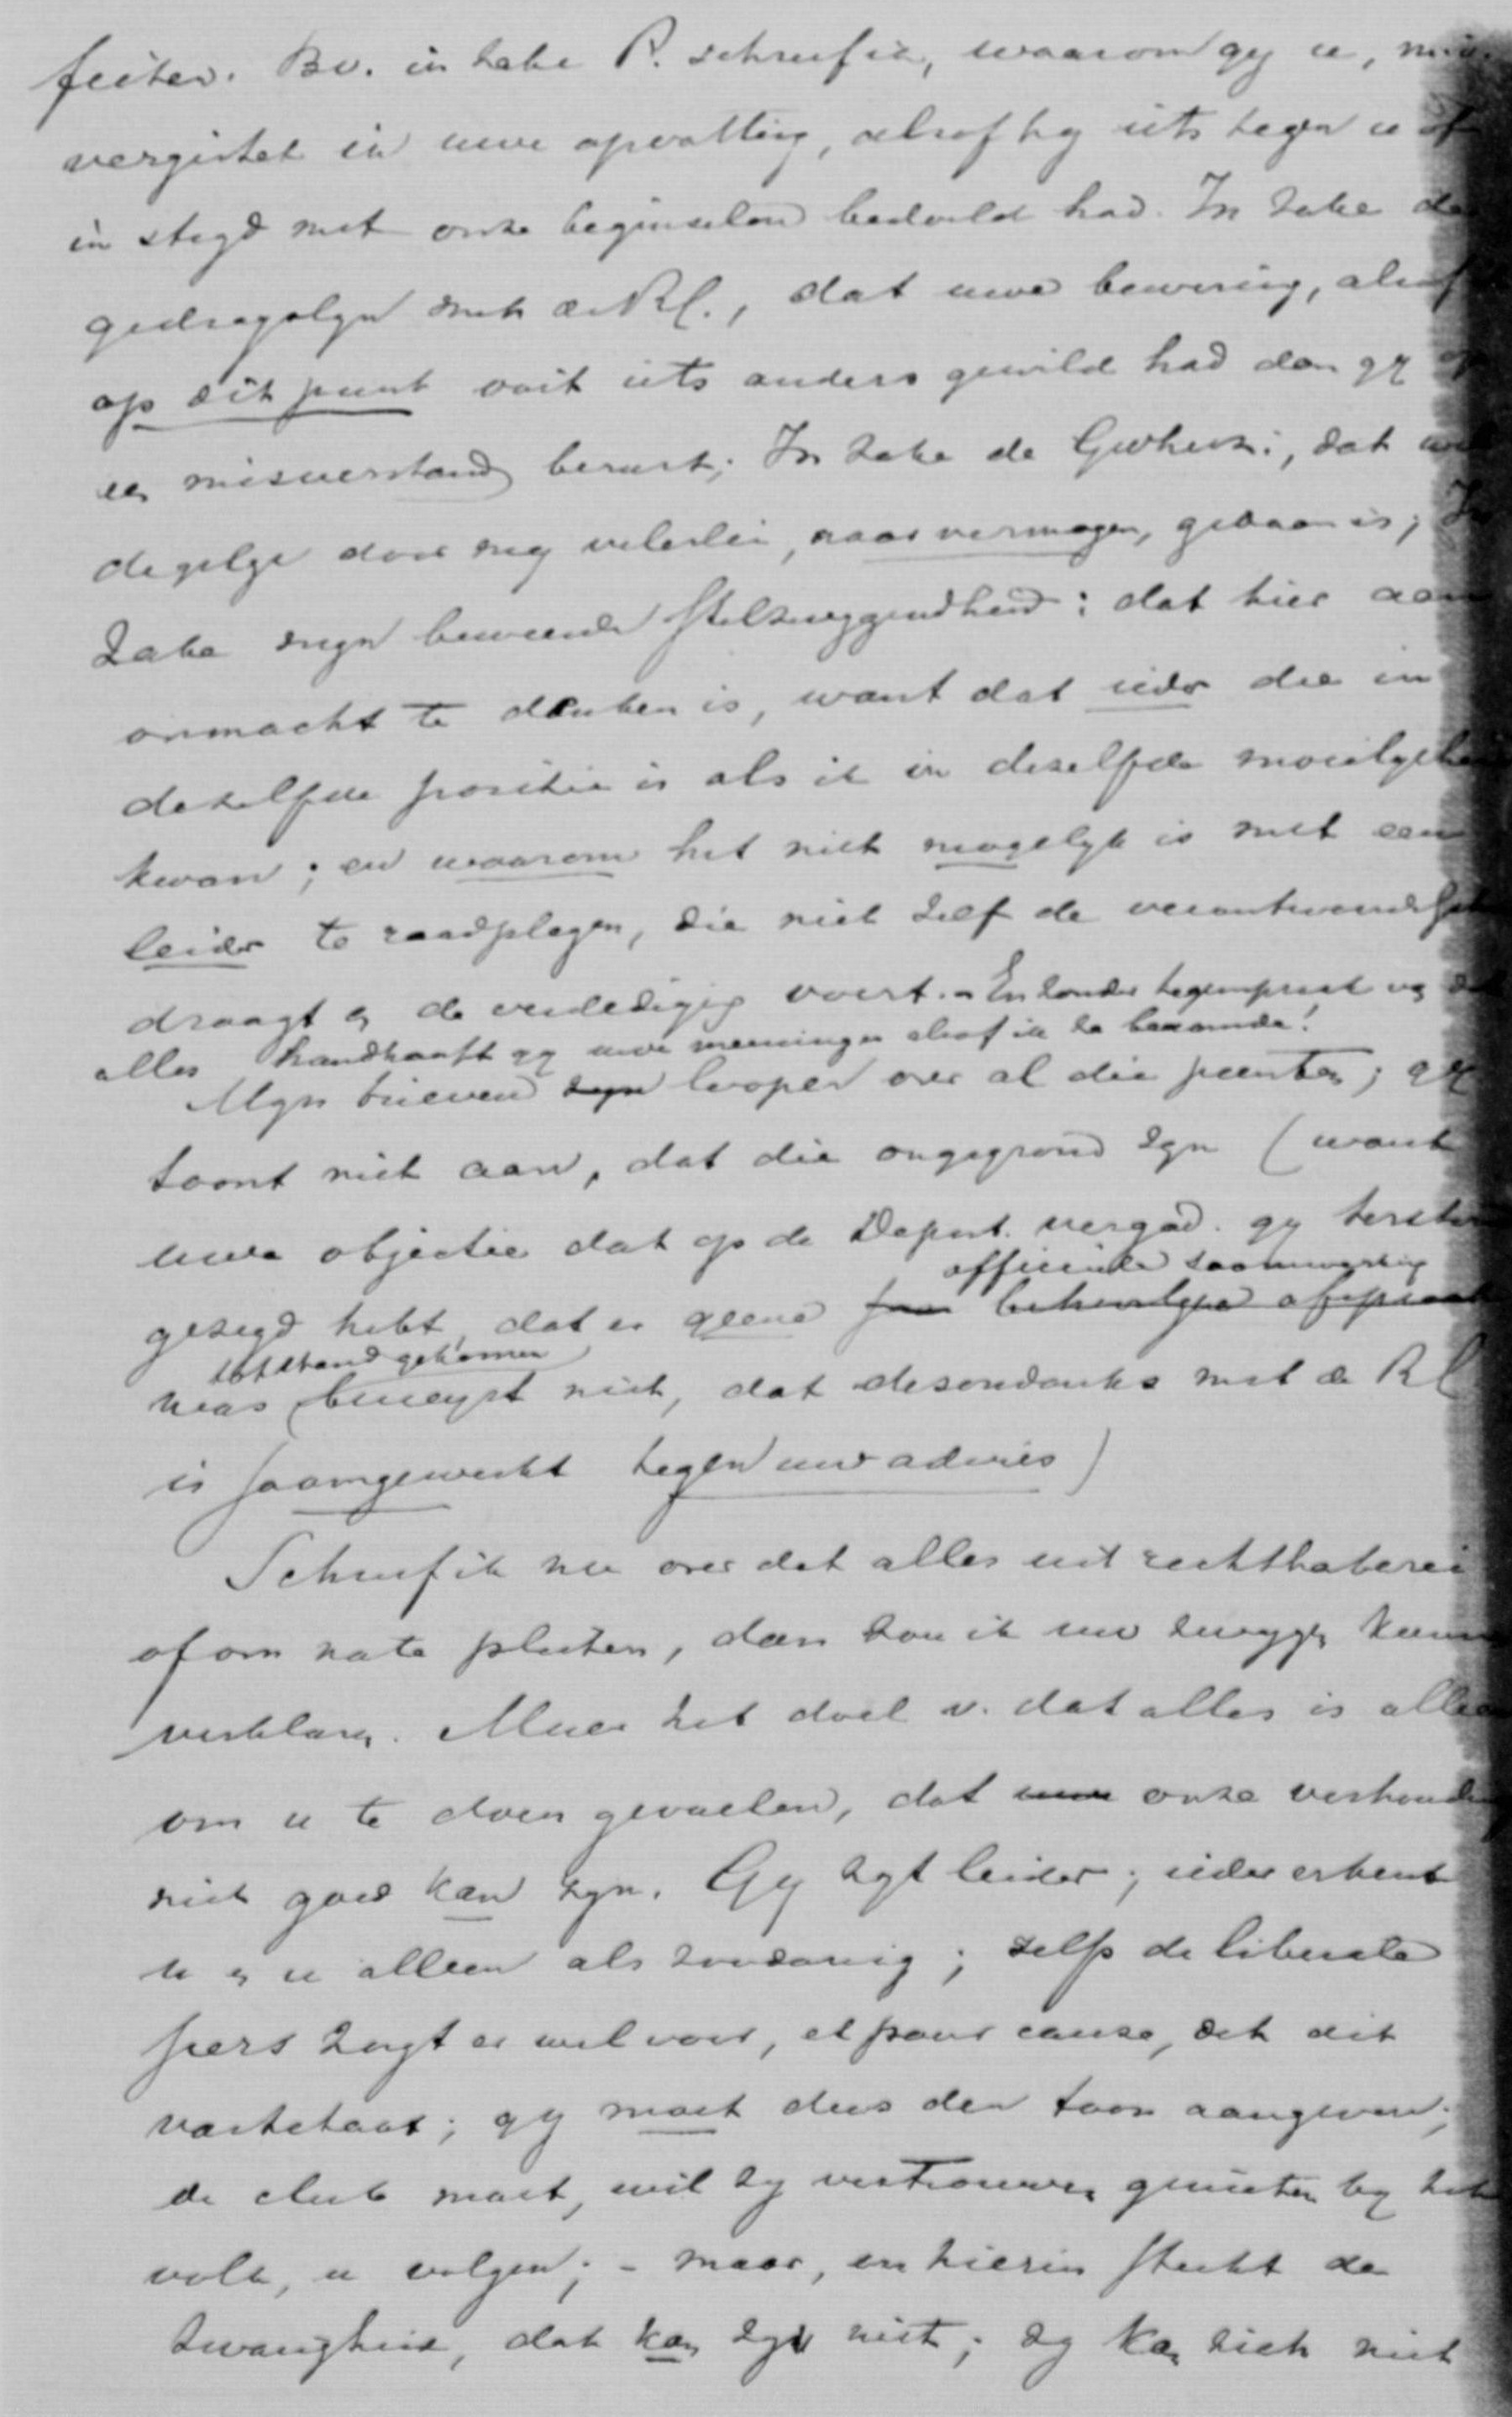 feiten. Bv. in zake P. schreef ik, waarom gij u, m.i.
vergistet in uwe opvatting, alsof hij iets tegen u of
in strijd met onze beginselen bedoeld had. In zake de
gedragslijn met de R.C., dat uwe bewering, alsof
op dit punt ooit iets anders gewild had dan gij op
een misverstand berust; In zake de Gwherz:, dat wel
degelijk door mij velerlei, naar vermogen, gedaan is; In
zake mijn beweerde stilzwijgendheid: dat hier aan
onmacht te denken is, want dat ieder die in
dezelfde positie is als ik in dezelfde moeilijkhe
kwam; en waarom het niet mogelijk is met een
leider te raadplegen, die niet zelf de verantwoordelijkh
draagt en de verdediging voert. – En zonder tegenspraak van dat
alles handhaaft gij uwe meeningen alsof ik ze beaamde!
Mijn brieven zijn loopen over al die punten; gij
toont niet aan, dat die ongegrond zijn (want
uwe objectie dat op de Deput. vergad. gij terstond
officieele saamwerking
gezegd hebt, dat er geene behoorlijke afspraak
tot stand gekomen
was bewijst niet, dat desondanks met de RC
is saamgewerkt tegen uw advies)
Schreef ik nu over dat alles uit rechthaberei
of om na te pleiten, dan zou ik uw zwijgen kunnen
verklaren. Maar het doel v. dat alles is alleen
om u te doen gevoelen, dat uwe onze verhouding
niet goed kan zijn. Gij zijt leider; ieder erkent
u en u alleen als zoodanig; zelfs de liberale
pers zorgt er wel voor, et pour cause, dat dit
vaststaat; gij moet dus den toon aangeven;
de club moet, wil zij vertrouwen genieten bij het
volk, u volgen; – maar, en hierin steekt de
zwarigheid, dat kan zij niet; zij kan zich niet